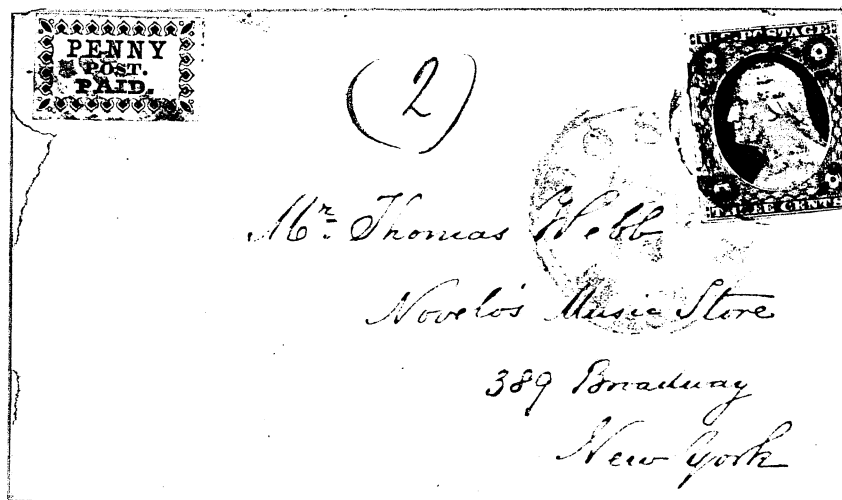 PENNY
POST.
PAID.
(2)
U.S. POSTAGE
THREE CENTS
Mr. Thomas Webb
Novelo's Music Store
389 Broadway
New York